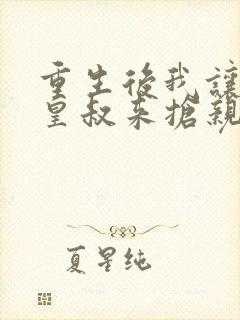 重生後我讓
皇叔來搶親
夏星純